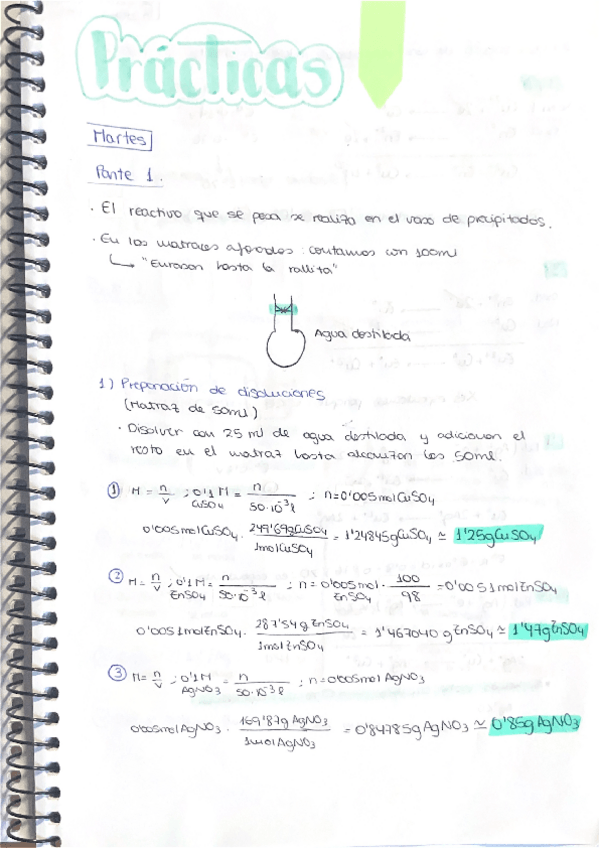 Prácticas
Martes
Parte 1.
· El reactivo que se pesa se realiza en el vaso de precipitados.
· En los matraces aforados: contamos con 100ml
↳ "Enrasar hasta la rallita"
Agua destilada
1) Preparación de disoluciones
(Matraz de 50ml)
· Disolver con 25 ml de agua destilada y adicionar el
resto en el matraz hasta alcanzar los 50ml.
① M = n/v ; 0'1 M CuSO4 = n/50·10⁻³ℓ ; n=0'005molCuSO4
0'005molCuSO4 · 249'69gCuSO4/1molCuSO4 = 1'24845gCuSO4 ≃ 1'25gCuSO4
② M = n/v ; 0'1 M ZnSO4 = n/50·10⁻³ℓ ; n = 0'005mol ZnSO4 · 100/98 = 0'0051molZnSO4
0'0051molZnSO4 · 287'54gZnSO4/1molZnSO4 = 1'467040 gZnSO4 ≃ 1'47gZnSO4
③ M = n/v ; 0'1M AgNO3 = n/50·10⁻³ℓ ; n=0'005mol AgNO3
0'005molAgNO3 · 169'87g AgNO3/1molAgNO3 = 0'84785g AgNO3 ≃ 0'85g AgNO3